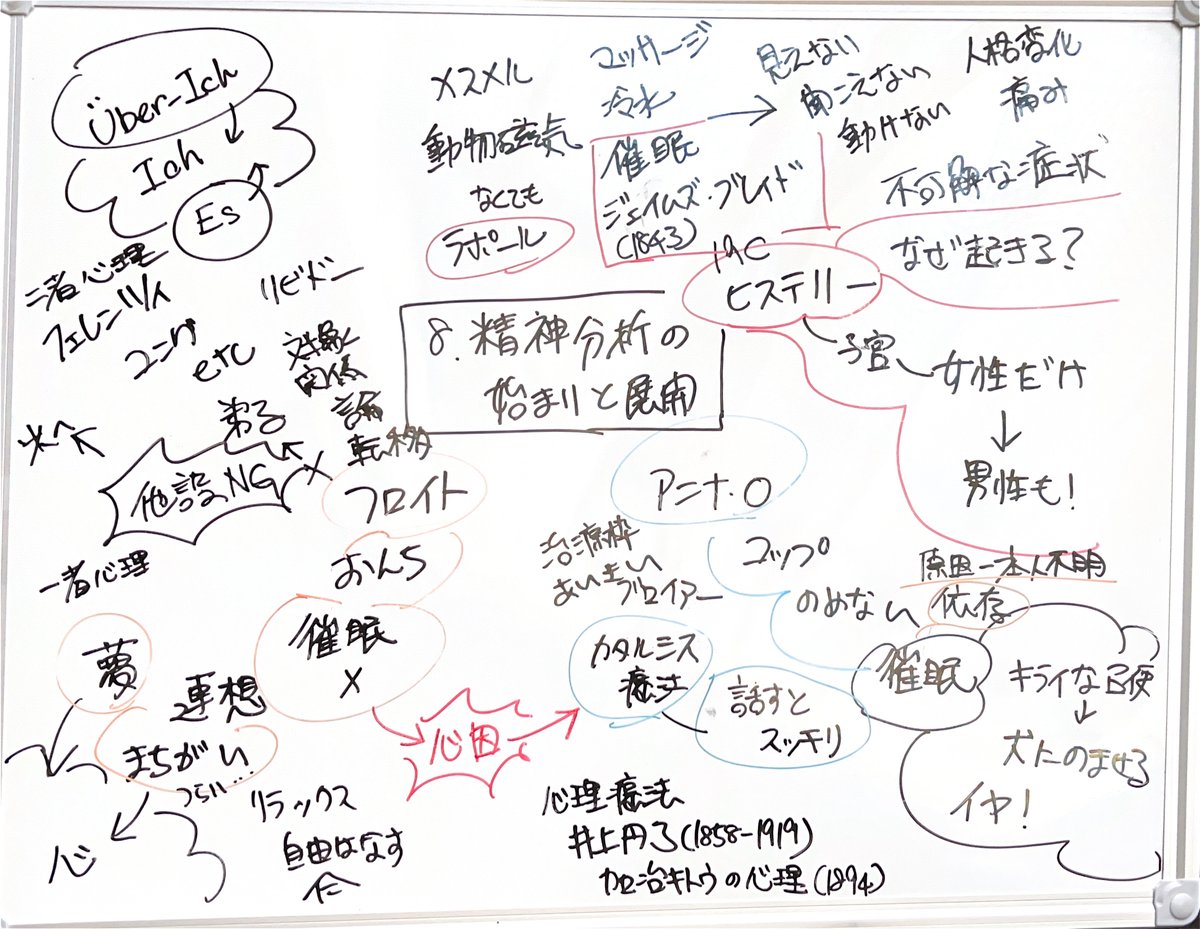 Über-Ich
Ich
Es
メスメル
動物磁気
なくても
ラポール
マッサージ
冷水
催眠
ジェイムズ・ブレイド
(1843)
見えない
聞こえない
動けない
人格変化
痛み
不可解な症状
なぜ起きる?
19C
ヒステリー
子宮
女性だけ
男性も!
原因一本人不明
8.精神分析の
始まりと展開
二者心理
フェレンツィ
ユング
etc
リビドー
対象
関係
論
転移
弟子
他説NG
フロイト
おんち
催眠
×
一者心理
夢
連想
まちがい
つらい…
心
リラックス
自由はなす
心因
アンナ・O
コップ
のめない
治療枠
あいまい
ブロイアー
カタルシス
療法
話すと
スッキリ
依存
催眠
キライな召使
犬にのませる
イヤ!
心理療法
井上円了(1858-1919)
加治キトウの心理(1894)